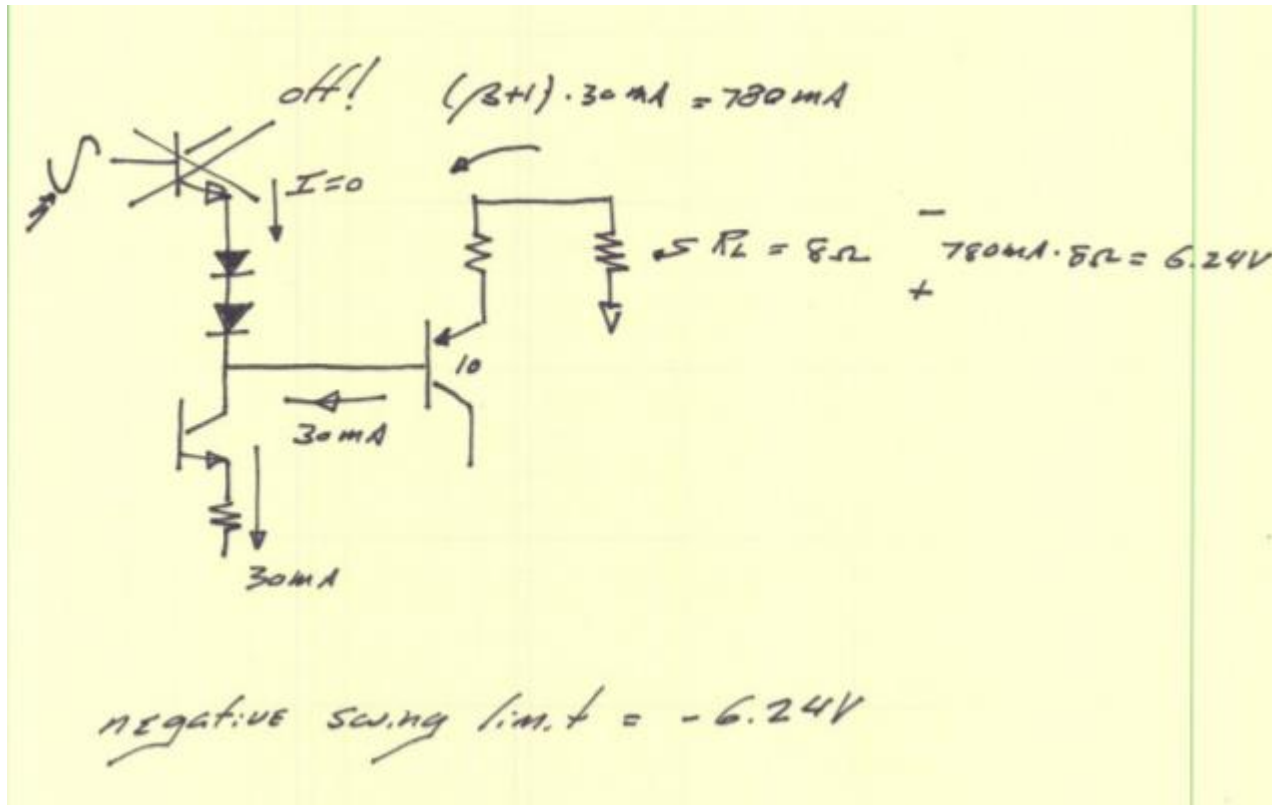 off!
(β+1)·30mA = 780mA
I=0
RL = 8Ω
−
780mA·8Ω = 6.24V
+
10
30mA
30mA
negative swing limit = -6.24V